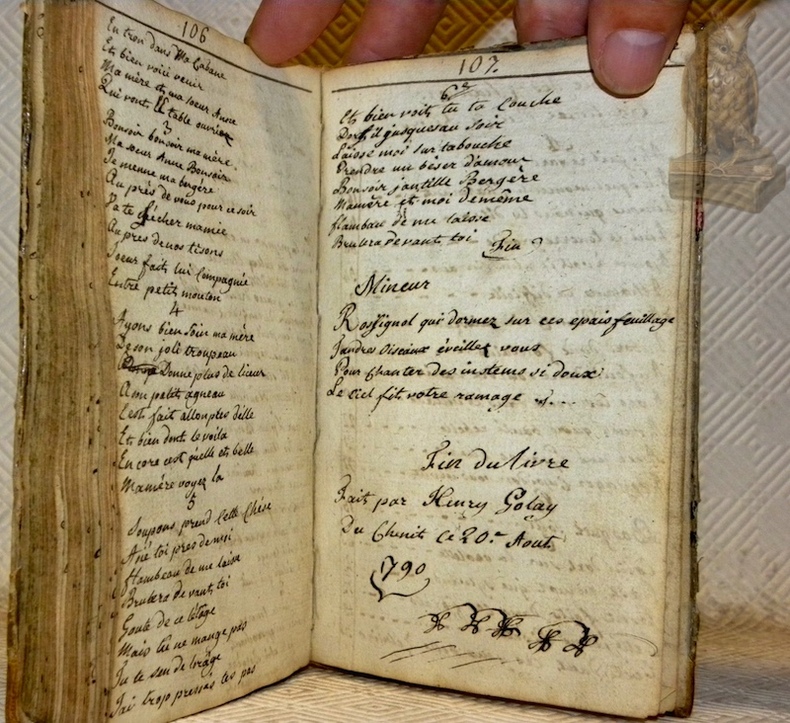 106
Entron dans Ma Cabane
Et bien voici venir
Ma mère et ma soeur Anne
Qui vont la table ouvrir
3
Bonsoir bonsoir ma mère
Ma soeur Anne Bonsoir
Je menne ma bergère
Au près de vous pour ce soir
Va te sécher mamie
Au pres de nos tisons
Soeur fait lui Compagnie
Entre petit mouton
4
Ayons bien soin ma mère
De son joli troupeau
Donne plus de lieur
A son petit agneau
C'est fait allon pres d'elle
Et bien dont te voila
Encore est quelle et belle
Mamère voyez la
5
Soupons prend cette Chèse
Asié toi pres de moi
flambeau de me laise
Brulera devant toi
Goute de ce létage
Mais tu ne mange pas
Jai trop pressés tes pas
107
6e
Et bien voit tu ta Couche
Dors il jusquesau soir
Laisse moi sur ta bouche
Prendre un béser d'amour
Bonsoir jantille Bergère
Mamère et moi demême
flambau de me laisse
Brulera devant toi
Fin
Mineur
Rossignol qui dormez sur ces epais feuillage
Tandres Oiseaux éveillez vous
Pour Chanter des instems si doux
Le ciel fit votre ramage
Fin du livre
Fait par Henry Golay
Du Chenit Ce 20.e Aout
790